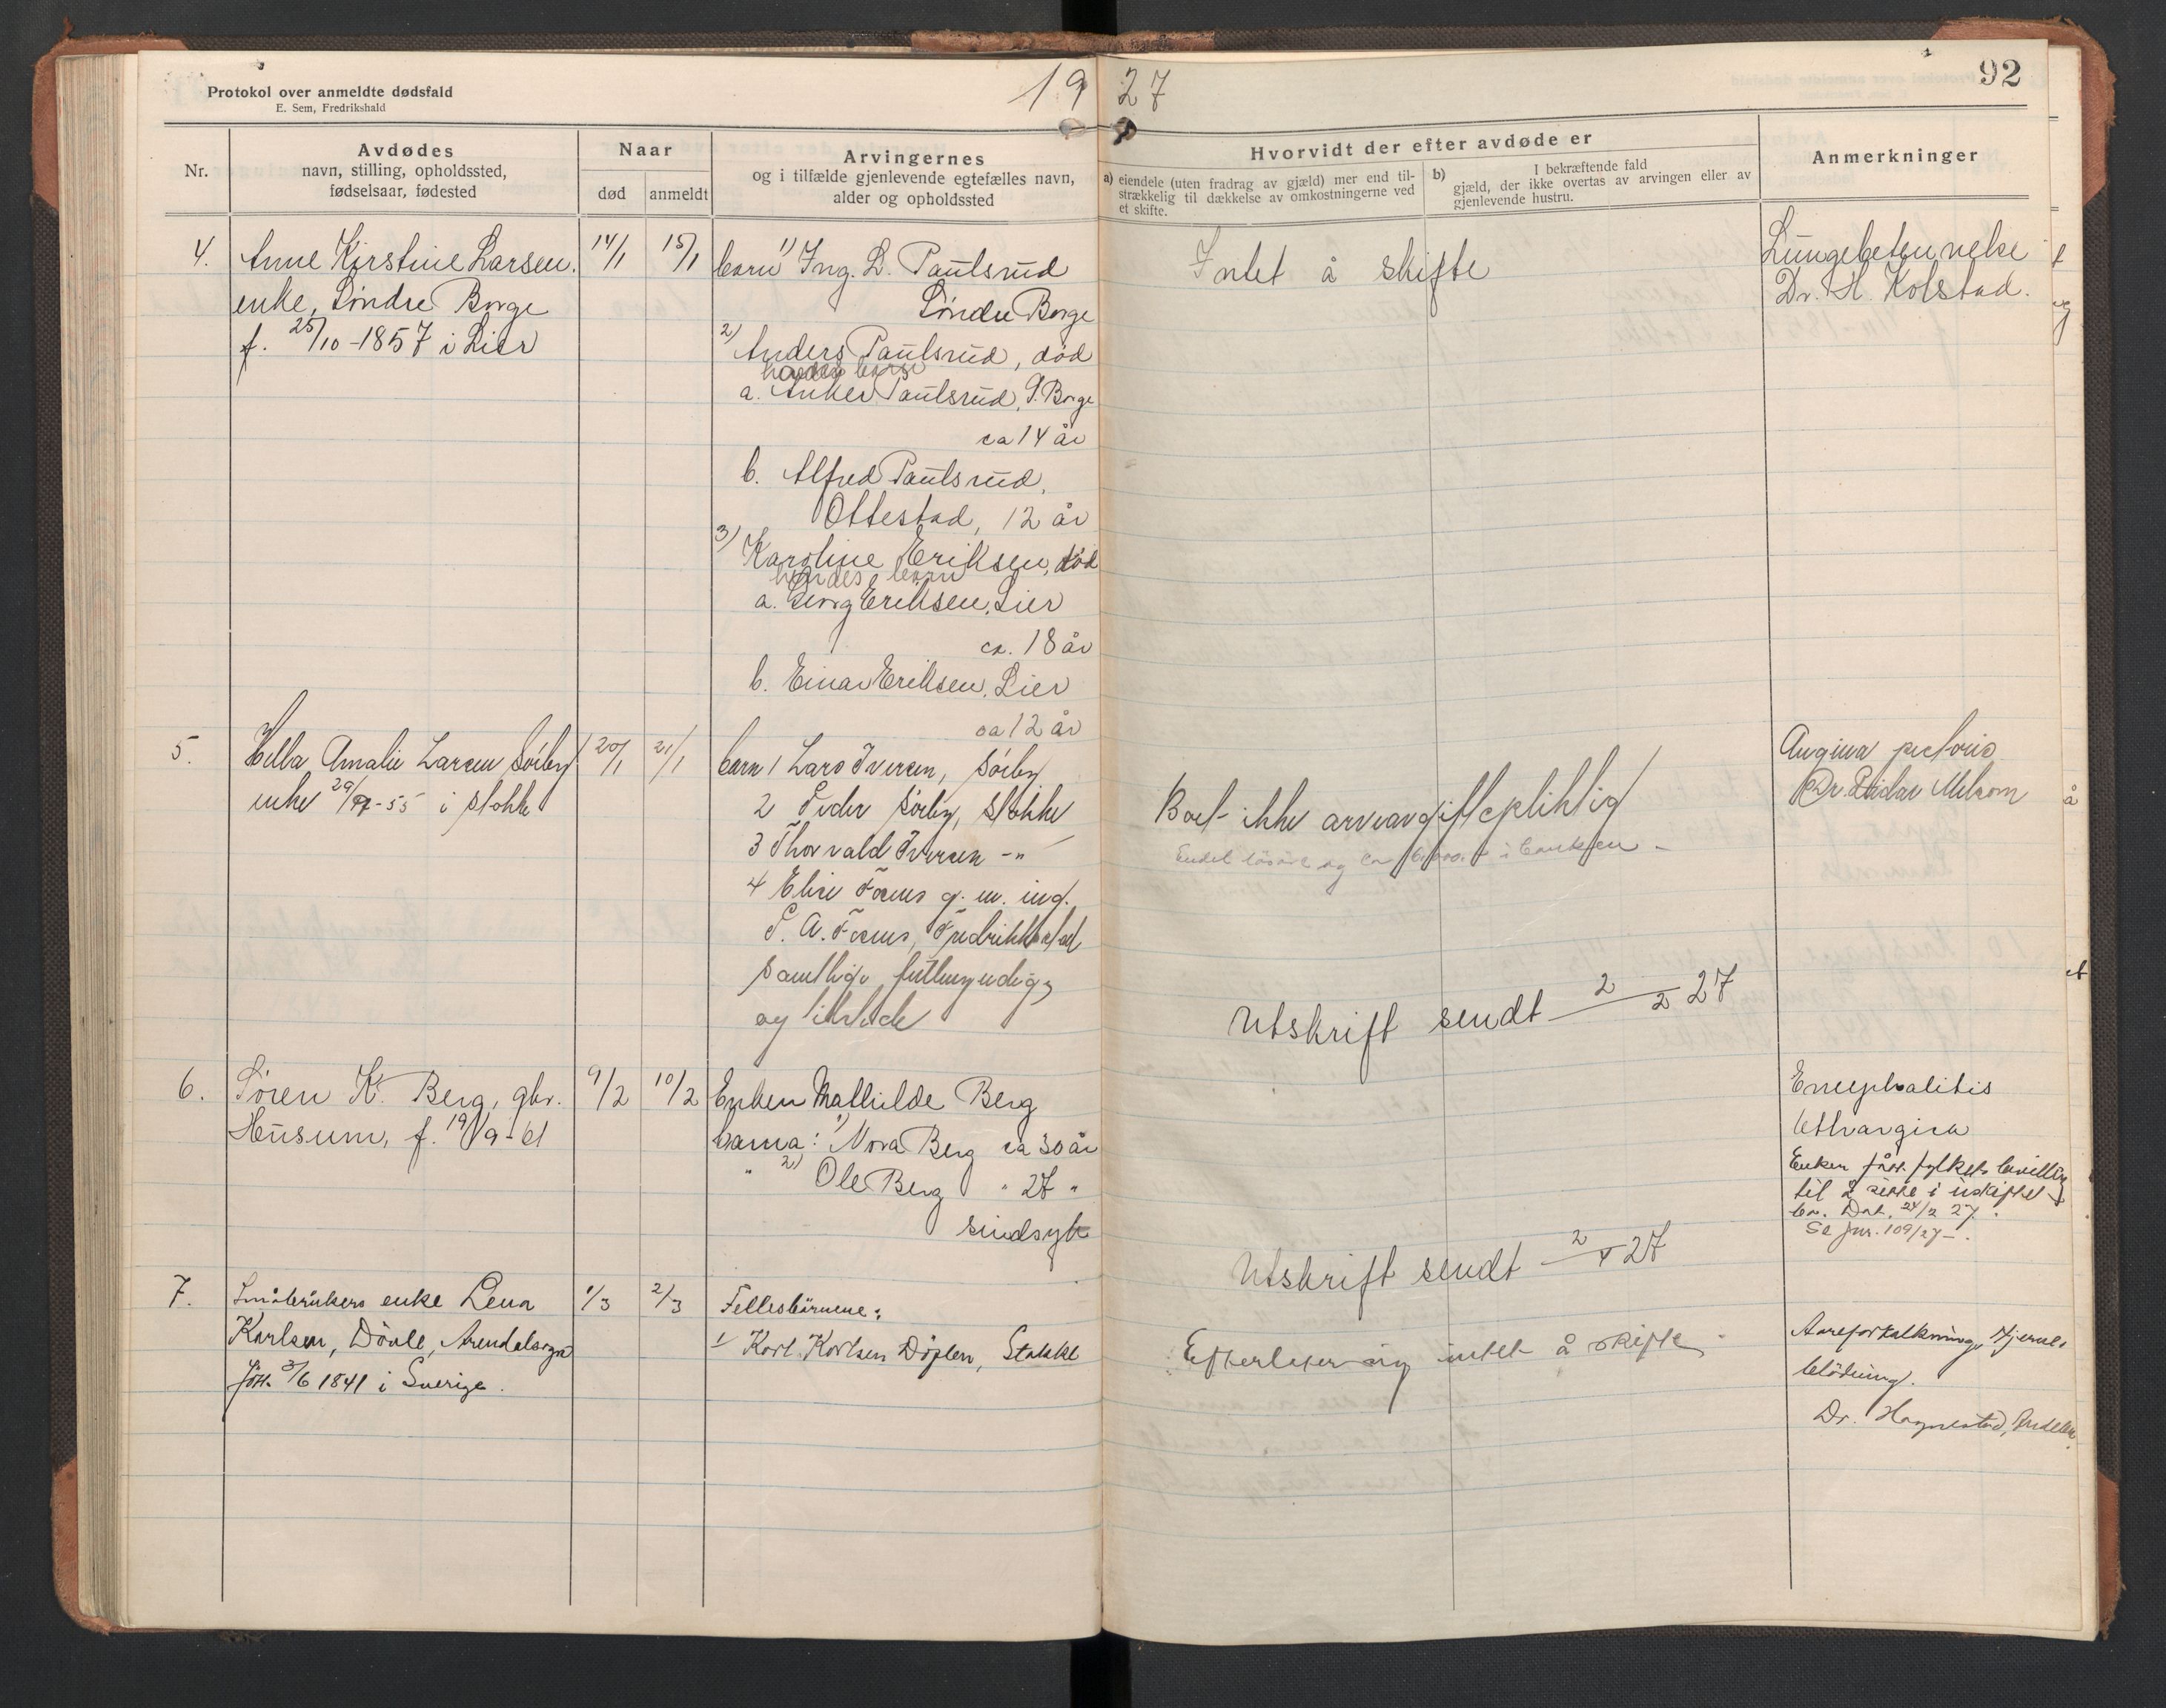 Protokol over anmeldte dødsfald
E. Sem, Fredrikshald
1927
92
Nr.
Avdødes
navn, stilling, opholdssted,
fødselsaar, fødested
Naar
død
anmeldt
Arvingernes
og i tilfælde gjenlevende egtefælles navn,
alder og opholdssted
Hvorvidt der efter avdøde er
a) eiendele (uten fradrag av gjæld) mer end til-
strækkelig til dækkelse av omkostningerne ved
et skifte.
b) I bekræftende fald
gjæld, der ikke overtas av arvingen eller av
gjenlevende hustru.
Anmerkninger
4.
Anne Kirstine Larsen.
enke, Søndre Borge
f. 25/10-1857 i Lier
14/1
15/1
barn 1) Ing. L. Paulsrud
Søndre Borge
2) Anders Paulsrud, død
barn
a. Anker Paulsrud, S. Borge
ca 14 år
b. Alfred Paulsrud,
Ottestad, 12 år
3) Karoline Eriksen, død
hendes barn
a. Georg Eriksen, Lier
ca. 18 år
b. Einar Eriksen, Lier
ca 12 år
Intet å skifte
Lungebetennelse
Dr. H. Kolstad.
5.
Helba Amalie Larsen Sörby
enke 29/ -55 i Stokke
20/1
21/1
barn 1 Lars Iversen, Sörby
2 Peder Sörby, Stokke
3 Thorvald Iversen -"-
4 Elise g. m. ing.
Fredrikkstad
Samtlige fullmyndige
og tilstede
Boet ikke arveavgiftspliktig
Endel lösöre og ca i banken -
Utskrift sendt 2/2 27
Angina pectoris
Dr. Reidar Melsom
6.
Søren K. Berg, gbr.
Husum, f. 19/9-61
9/2
10/2
Enken Mathilde Berg
barna: 1) Nora Berg ca 30 år
" 2) Ole Berg " 27 "
sindsyk
Utskrift sendt 2/4 27
Encephalitis
lethargica
Enken fått fylkets bevilling
til å sitte i uskiftet
bo. Dat. 24/2 27.
Se jnr. 109/27 -.
7.
Småbrukers enke Lena
Karlsen, Dövle, Arendalsogn
født 3/6 1841 i Sverige.
1/3
2/3
Fellesbårnene:
1/ Karl Karlsen Døvlen, Stokke
Efterlater sig intet å skifte.
Aareforkalkning, Hjerne-
blödning.
Dr. Hagnestad,